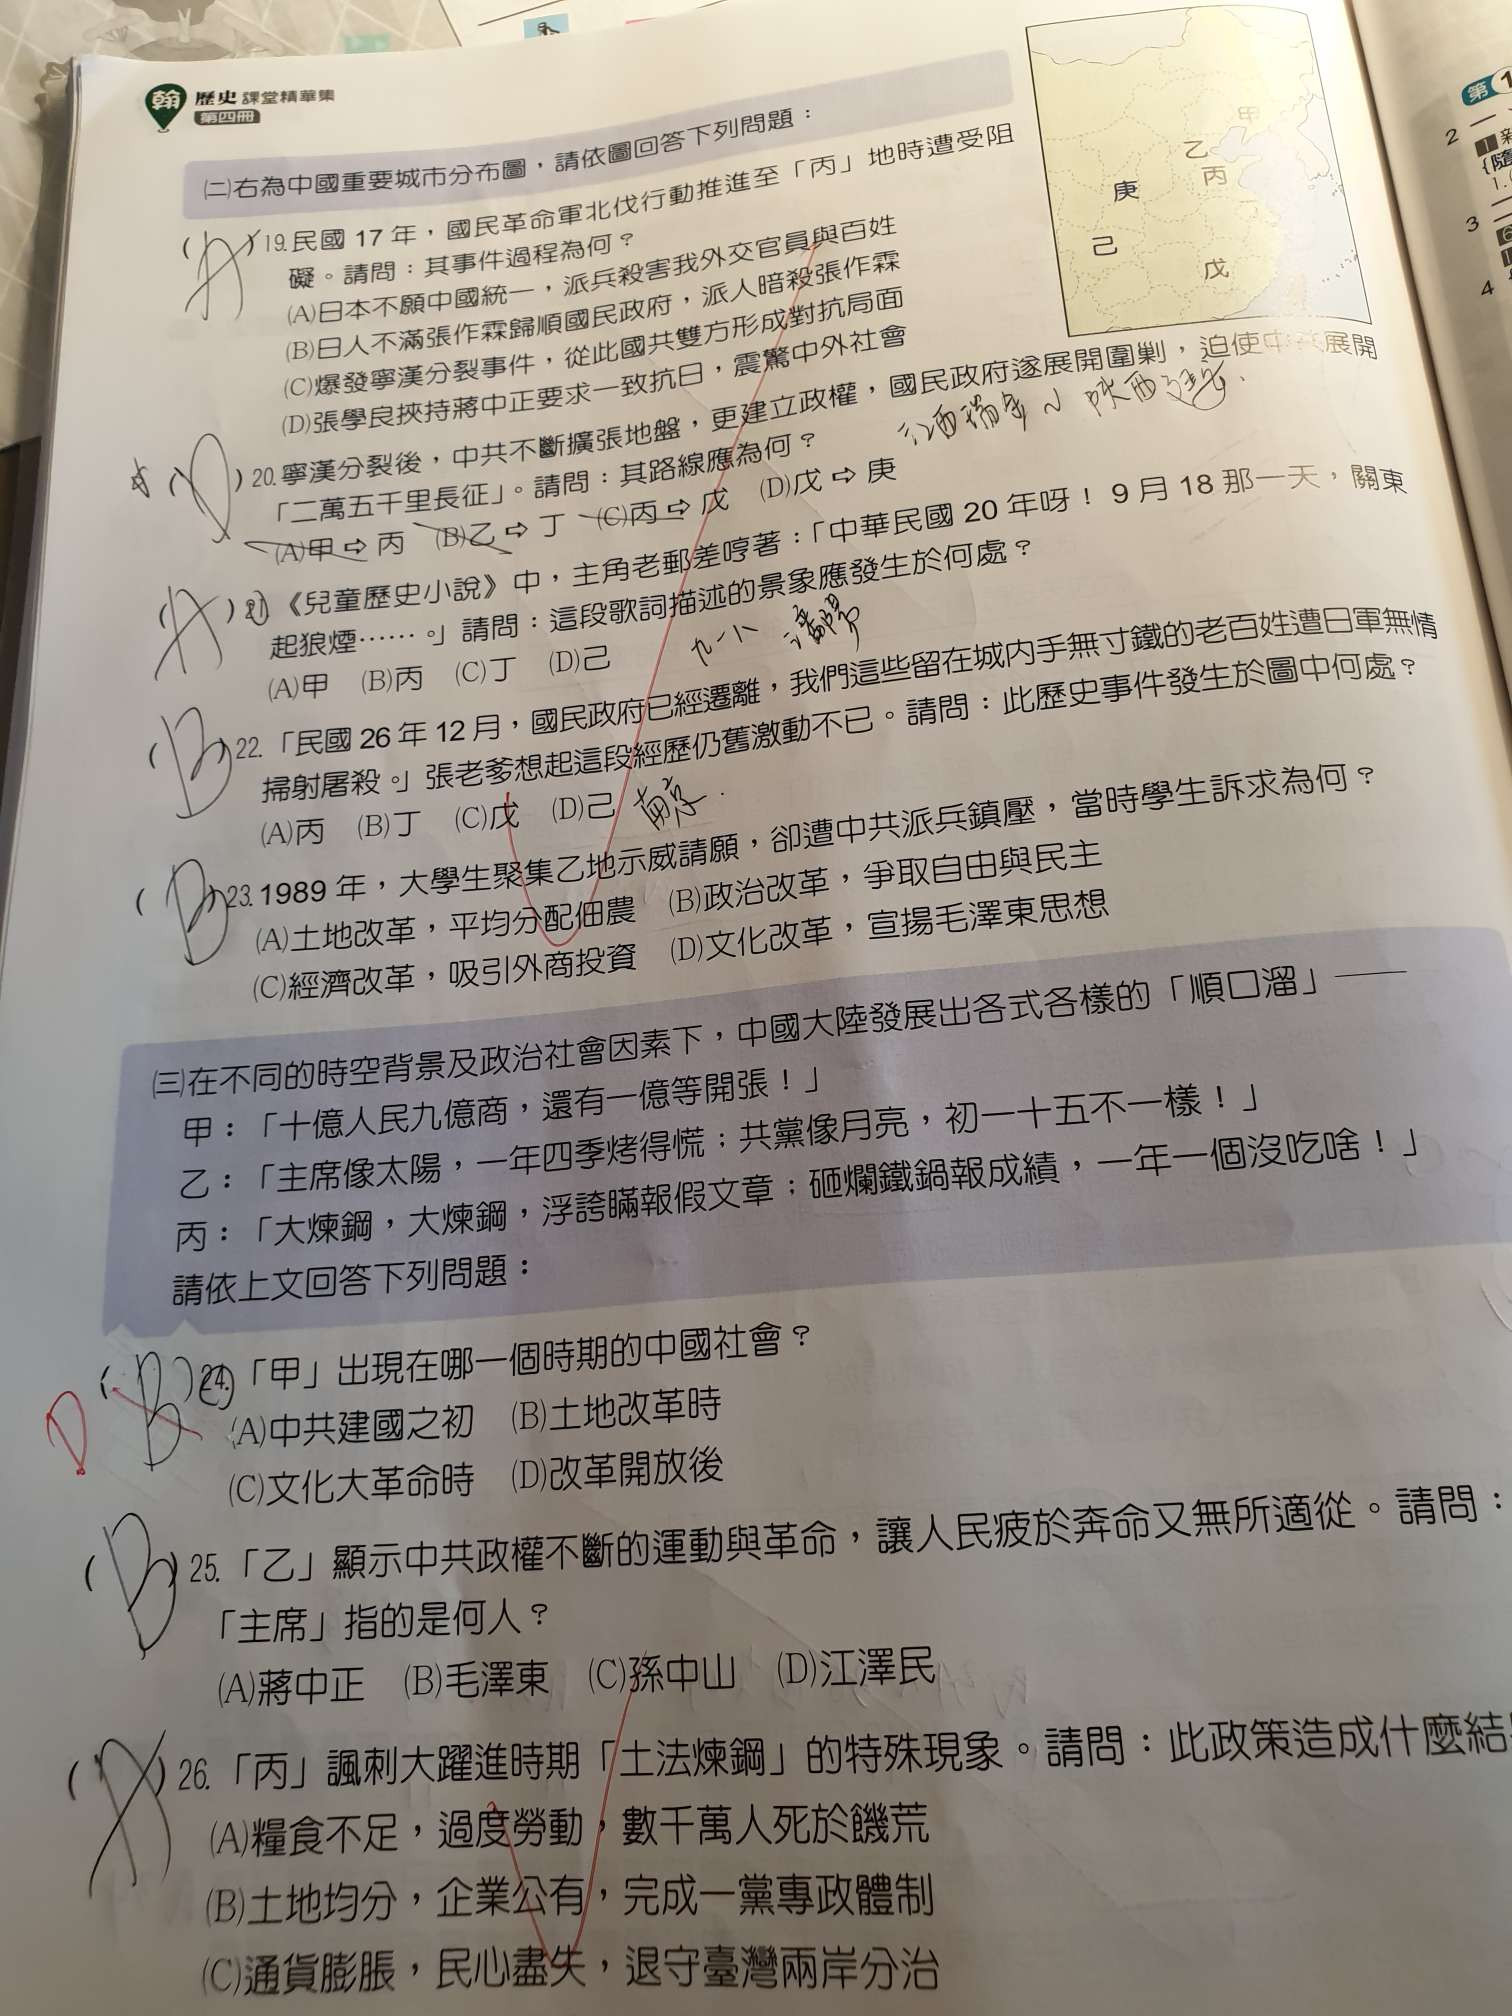 翰 歷史 課堂精華集
第四冊
㈡右為中國重要城市分布圖，請依圖回答下列問題：
甲
乙
丙
庚
己
戊
(A)19.民國 17 年，國民革命軍北伐行動推進至「丙」地時遭受阻
礙。請問：其事件過程為何？
(A)日本不願中國統一，派兵殺害我外交官員與百姓
(B)日人不滿張作霖歸順國民政府，派人暗殺張作霖
(C)爆發寧漢分裂事件，從此國共雙方形成對抗局面
(D)張學良挾持蔣中正要求一致抗日，震驚中外社會
(D)20.寧漢分裂後，中共不斷擴張地盤，更建立政權，國民政府遂展開圍剿，迫使中共展開
「二萬五千里長征」。請問：其路線應為何？
江西瑞金~陝西延安.
(A)甲⇨丙 (B)乙⇨丁 (C)丙⇨戊 (D)戊⇨庚
(A)21.《兒童歷史小說》中，主角老郵差哼著：「中華民國 20 年呀！ 9 月 18 那一天，關東
起狼煙……。」請問：這段歌詞描述的景象應發生於何處？
(A)甲 (B)丙 (C)丁 (D)己
九一八 瀋陽
(B)22.「民國 26 年 12 月，國民政府已經遷離，我們這些留在城內手無寸鐵的老百姓遭日軍無情
掃射屠殺。」張老爹想起這段經歷仍舊激動不已。請問：此歷史事件發生於圖中何處？
(A)丙 (B)丁 (C)戊 (D)己 南京.
(B)23.1989 年，大學生聚集乙地示威請願，卻遭中共派兵鎮壓，當時學生訴求為何？
(A)土地改革，平均分配佃農 (B)政治改革，爭取自由與民主
(C)經濟改革，吸引外商投資 (D)文化改革，宣揚毛澤東思想
㈢在不同的時空背景及政治社會因素下，中國大陸發展出各式各樣的「順口溜」——
甲：「十億人民九億商，還有一億等開張！」
乙：「主席像太陽，一年四季烤得慌；共黨像月亮，初一十五不一樣！」
丙：「大煉鋼，大煉鋼，浮誇瞞報假文章；砸爛鐵鍋報成績，一年一個沒吃啥！」
請依上文回答下列問題：
D (B)24.「甲」出現在哪一個時期的中國社會？
(A)中共建國之初 (B)土地改革時
(C)文化大革命時 (D)改革開放後
(B)25.「乙」顯示中共政權不斷的運動與革命，讓人民疲於奔命又無所適從。請問：
「主席」指的是何人？
(A)蔣中正 (B)毛澤東 (C)孫中山 (D)江澤民
(A)26.「丙」諷刺大躍進時期「土法煉鋼」的特殊現象。請問：此政策造成什麼結
(A)糧食不足，過度勞動，數千萬人死於饑荒
(B)土地均分，企業公有，完成一黨專政體制
(C)通貨膨脹，民心盡失，退守臺灣兩岸分治
第1
2 一
1
1.
3
6
4